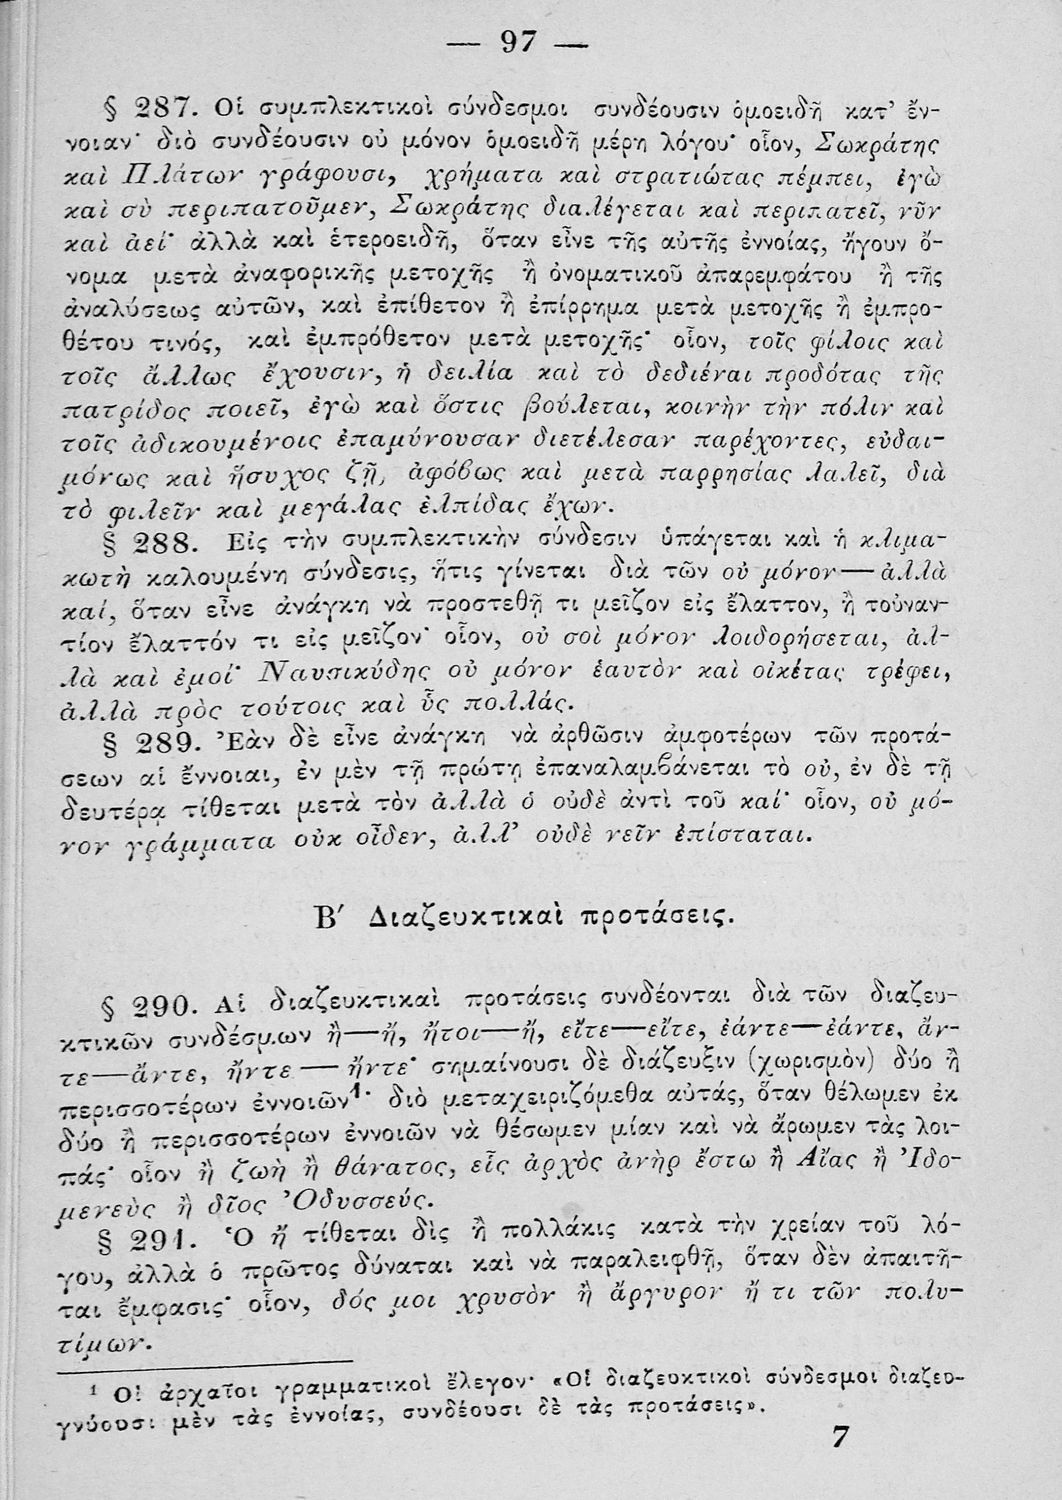 — 97 —
§ 287. Οἱ συμπλεκτικοὶ σύνδεσμοι συνδέουσιν ὁμοειδῆ κατ’ ἔν-
νοιαν· διὸ συνδέουσιν οὐ μόνον ὁμοειδῆ μέρη λόγου· οἷον, Σωκράτης
καὶ Πλάτων γράφουσι, χρήματα καὶ στρατιώτας πέμπει, ἐγὼ
καὶ σὺ περιπατοῦμεν, Σωκράτης διαλέγεται καὶ περιπατεῖ, νῦν
καὶ ἀεί· ἀλλὰ καὶ ἑτεροειδῆ, ὅταν εἶνε τῆς αὐτῆς ἐννοίας, ἤγουν ὄ-
νομα μετὰ ἀναφορικῆς μετοχῆς ἢ ὀνοματικοῦ ἀπαρεμφάτου ἢ τῆς
ἀναλύσεως αὐτῶν, καὶ ἐπίθετον ἢ ἐπίρρημα μετὰ μετοχῆς ἢ ἐμπρο-
θέτου τινός, καὶ ἐμπρόθετον μετὰ μετοχῆς· οἷον, τοῖς φίλοις καὶ
τοῖς ἄλλως ἔχουσιν, ἡ δειλία καὶ τὸ δεδιέναι προδότας τῆς
πατρίδος ποιεῖ, ἐγὼ καὶ ὅστις βούλεται, κοινὴν τὴν πόλιν καὶ
τοῖς ἀδικουμένοις ἐπαμύνουσαν διετέλεσαν παρέχοντες, εὐδαι-
μόνως καὶ ἥσυχος ζῇ, ἀφόβως καὶ μετὰ παρρησίας λαλεῖ, διὰ
τὸ φιλεῖν καὶ μεγάλας ἐλπίδας ἔχων.
§ 288. Εἰς τὴν συμπλεκτικὴν σύνδεσιν ὑπάγεται καὶ ἡ κλιμα-
κωτὴ καλουμένη σύνδεσις, ἥτις γίνεται διὰ τῶν οὐ μόνον — ἀλλὰ
καί, ὅταν εἶνε ἀνάγκη νὰ προστεθῇ τι μεῖζον εἰς ἔλαττον, ἢ τοὐναν-
τίον ἔλαττόν τι εἰς μεῖζον· οἷον, οὐ σοὶ μόνον λοιδορήσεται, ἀλ-
λὰ καὶ ἐμοί· Ναυσικύδης οὐ μόνον ἑαυτὸν καὶ οἰκέτας τρέφει,
ἀλλὰ πρὸς τούτοις καὶ ὗς πολλάς.
§ 289. Ἐὰν δὲ εἶνε ἀνάγκη νὰ ἀρθῶσιν ἀμφοτέρων τῶν προτά-
σεων αἱ ἔννοιαι, ἐν μὲν τῇ πρώτῃ ἐπαναλαμβάνεται τὸ οὐ, ἐν δὲ τῇ
δευτέρᾳ τίθεται μετὰ τὸν ἀλλὰ ὁ οὐδὲ ἀντὶ τοῦ καί· οἷον, οὐ μό-
νον γράμματα οὐκ οἶδεν, ἀλλ’ οὐδὲ νεῖν ἐπίσταται.
Β′ Διαζευκτικαὶ προτάσεις.
§ 290. Αἱ διαζευκτικαὶ προτάσεις συνδέονται διὰ τῶν διαζευ-
κτικῶν συνδέσμων ἢ—ἤ, ἤτοι—ἤ, εἴτε—εἴτε, ἐάντε—ἐάντε, ἄν-
τε—ἄντε, ἤντε — ἤντε· σημαίνουσι δὲ διάζευξιν (χωρισμὸν) δύο ἢ
περισσοτέρων ἐννοιῶν¹· διὸ μεταχειριζόμεθα αὐτάς, ὅταν θέλωμεν ἐκ
δύο ἢ περισσοτέρων ἐννοιῶν νὰ θέσωμεν μίαν καὶ νὰ ἄρωμεν τὰς λοι-
πάς· οἷον ἢ ζωὴ ἢ θάνατος, εἷς ἀρχὸς ἀνὴρ ἔστω ἢ Αἴας ἢ Ἰδο-
μενεὺς ἢ δῖος Ὀδυσσεύς.
§ 291. Ὁ ἤ τίθεται δὶς ἢ πολλάκις κατὰ τὴν χρείαν τοῦ λό-
γου, ἀλλὰ ὁ πρῶτος δύναται καὶ νὰ παραλειφθῇ, ὅταν δὲν ἀπαιτῆ-
ται ἔμφασις· οἷον, δός μοι χρυσὸν ἢ ἄργυρον ἤ τι τῶν πολυ-
τίμων.
¹ Οἱ ἀρχαῖοι γραμματικοὶ ἔλεγον· «Οἱ διαζευκτικοὶ σύνδεσμοι διαζευ-
γνύουσι μὲν τὰς ἐννοίας, συνδέουσι δὲ τὰς προτάσεις».
7